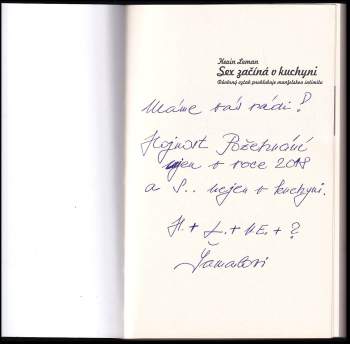 Kevin Leman
Sex začíná v kuchyni
Důvěrný vztah prohlubuje manželskou intimitu
Máme vás rádi!
Hojnost Požehnání
nejen v roce 2018
a S.. nejen v kuchyni.
H. + L. + ME. + ?
Šamalovi